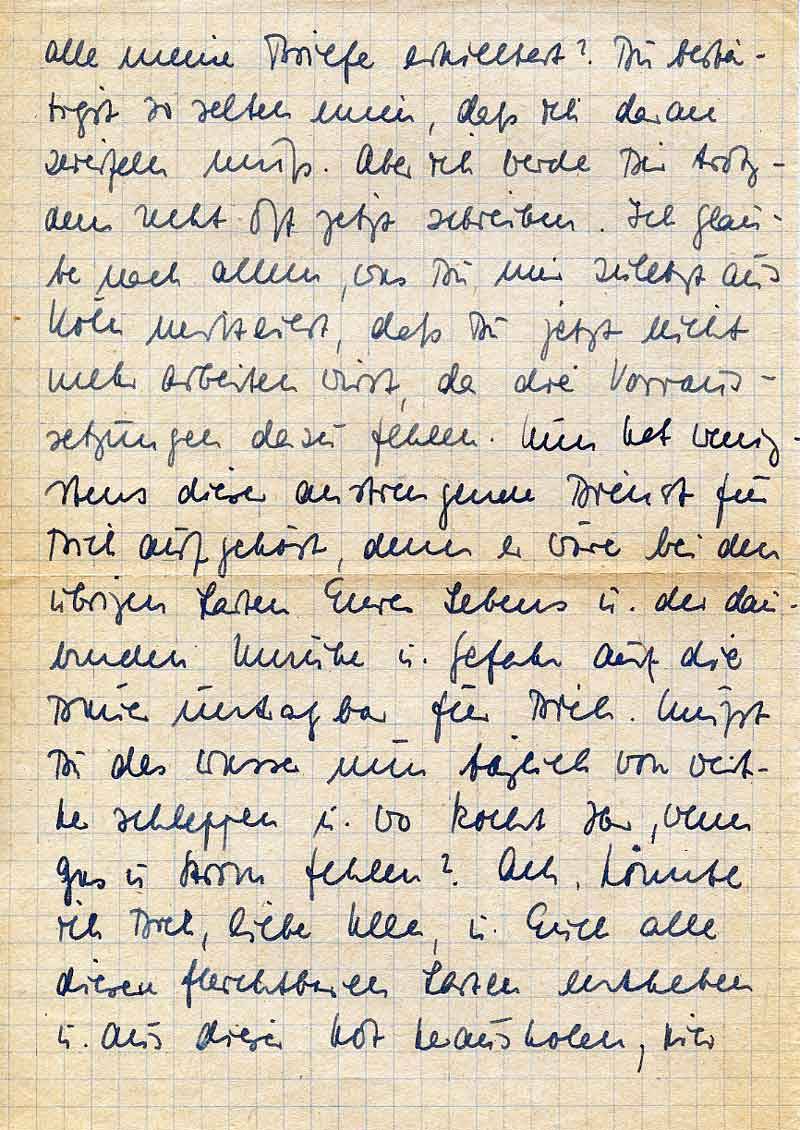 alle meine Briefe erhieltest? Du bestä-
tigst so selten einen, daß ich daran
zweifeln muß. Aber ich werde Dir trotz-
dem recht oft jetzt schreiben. Ich glau-
be nach allem, was Du mir zuletzt aus
Köln mitteilst, daß Du jetzt nicht
mehr arbeiten wirst, da die Vorraus-
setzungen dazu fehlen. Nun hat wenig-
stens dieser anstrengende Dienst für
Dich aufgehört, denn er wäre bei den
übrigen Lasten Eures Lebens u. der dau-
ernden Unruhe u. Gefahr auf die
Dauer untragbar für Dich. Mußt
Du das Wasser nun täglich von weit-
her schleppen u. wo kocht Ihr, wenn
Gas u. Strom fehlen? Ach, könnte
ich Dich, liebe Ulla, u. Euch alle
diesen furchtbaren Lasten entheben
u. aus dieser Not herausholen, hier